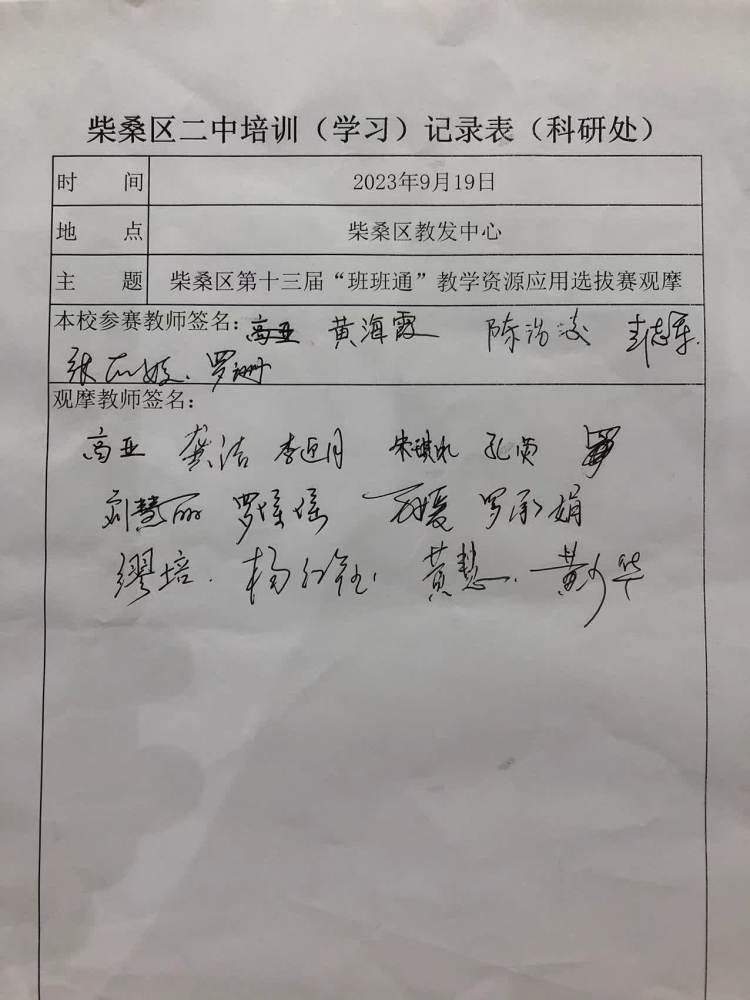 柴桑区二中培训（学习）记录表（科研处）
时 间 2023年9月19日
地 点 柴桑区教发中心
主 题 柴桑区第十三届“班班通”教学资源应用选拔赛观摩
本校参赛教师签名：高亚 黄海霞 陈 彭志军
罗珊
观摩教师签名：
高亚 龚洁 李 孔
刘慧丽 罗瑶瑶 罗承娟
缪培 杨 黄慧 黄少华